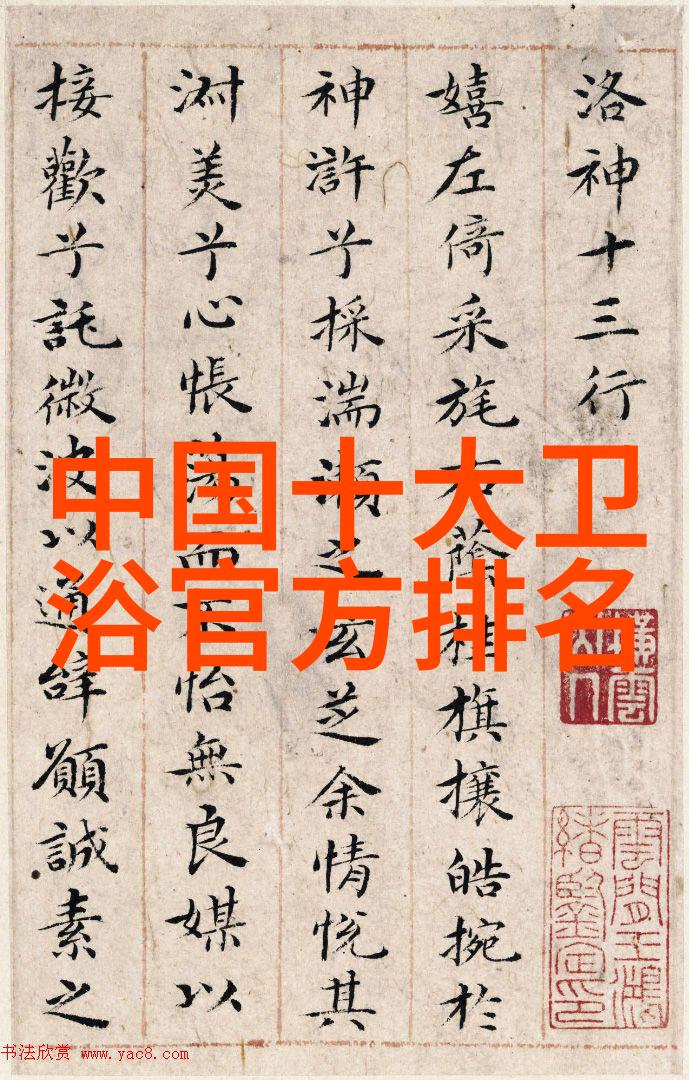 洛神十三行
嬉左倚采旄右蔭桂旗攘皓捥於
神許兮採湍瀬之玄芝余情悅其
淑美兮心帳蕩而不怡無良媒以
接歡兮託微波以通辭願誠素之
中国十大卫
浴官方排名
雲間王鴻
緒鑒定印
书法欣赏 www.yac8.com